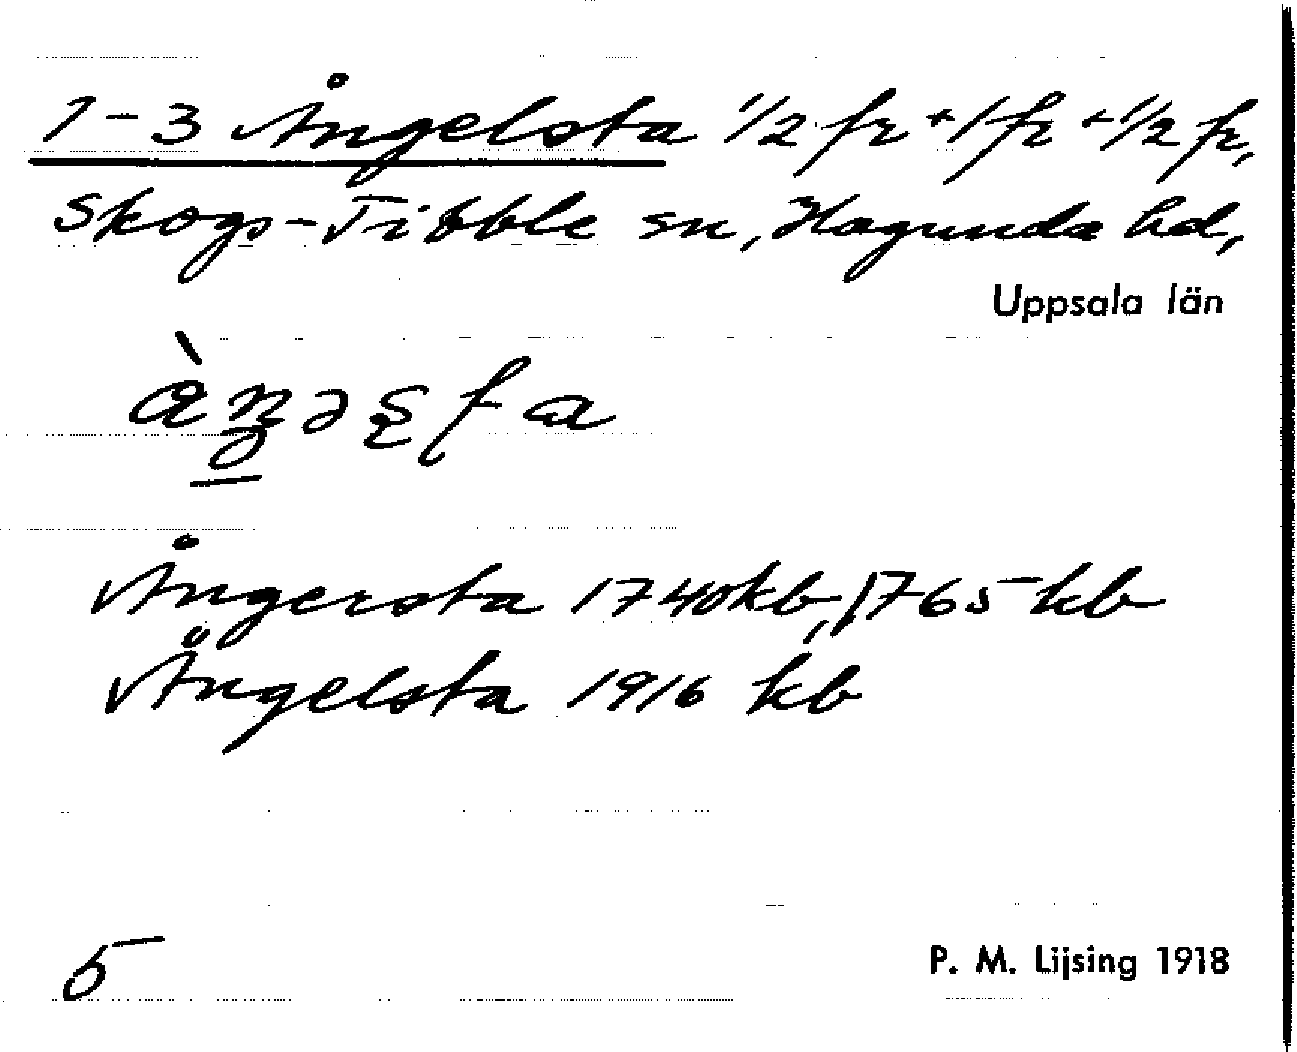 1-3 Ångelsta 1/2 fr + 1 fr + 1/2 fr,
Skogs-Tibble sn, Hagunda hd,
Uppsala län
Ångersta 1740 kb, 1765 kb
Ängelsta 1916 kb
5
P. M. Lijsing 1918